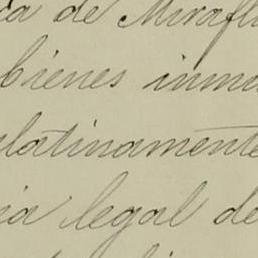 ca de Mirafl
bienes inmu
latinamente
ia legal de